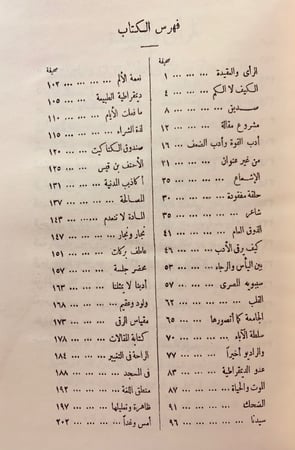 فهرس الكتاب
صحيفة
الرأى والعقيدة ... ... ... ١
الكيف لا الكم ... ... ... ٤
صديق ... ... ... ... ٨
مشروع مقالة ... ... ... ١٢
أدب القوة وأدب الضعف ... ١٦
من غير عنوان ... ... ... ٢١
الإشعاع ... ... ... ... ٢٥
حلقة مفقودة ... ... ... ٣٠
شاعر ... ... ... ... ٣٥
الذوق العام ... ... ... ٤١
كيف يرقى الأدب ... ... ٤٦
بين اليأس والرجاء ... ... ٥٣
سيبويه المصرى ... ... ... ٥٧
القلب ... ... ... ... ٦٢
الجامعة كما أتصورها ... ... ٦٥
سلطة الآباء ... ... ... ٧٠
والراديو أخيراً ... ... ... ٧٧
عدو الديمقراطية ... ... ... ٨٣
الموت والحياة ... ... ... ٨٧
الضحك ... ... ... ... ٩١
سيدنا ... ... ... ... ٩٦
صحيفة
نعمة الألم ... ... ... ... ١٠٢
ديمقراطية الطبيعة ... ... ١٠٥
ما فعلت الأيام ... ... ... ١١٠
لذة الشراء ... ... ... ١١٥
صندوق الكتاكيت ... ... ١٢٠
الأحنف بن قيس ... ... ١٢٥
أكاذيب المدنية ... ... ... ١٣١
... ... ... ١٣٧
المادة لا تنعدم ... ... ... ١٤٣
تجار وتجار ... ... ... ١٤٧
عاطف بركات ... ... ... ١٥١
محضر جلسة ... ... ... ١٥٧
أدبنا لا يمثلنا ... ... ... ١٦٣
ولود وعقيم ... ... ... ١٦٨
مقياس الرقى ... ... ... ١٧٣
كتابة المقالات ... ... ... ١٧٨
الراحة فى التغيير ... ... ... ١٨٤
فى المسجد ... ... ... ١٨٨
منطق اللغة ... ... ... ١٩٢
ظاهرة وتعليلها ... ... ... ١٩٧
أمس وغداً ... ... ... ٢٠٢